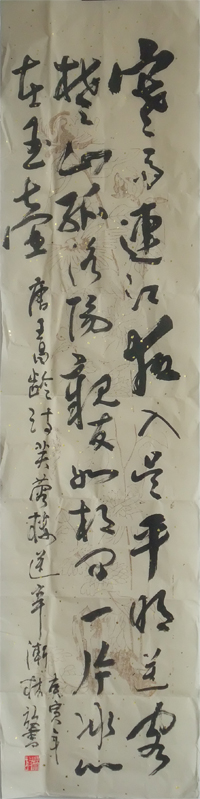 寒雨連江夜入吳平明送客
楚山孤洛陽親友如相問一片冰心
在玉壺
唐王昌齡詩芙蓉樓送辛漸
庚寅年
書